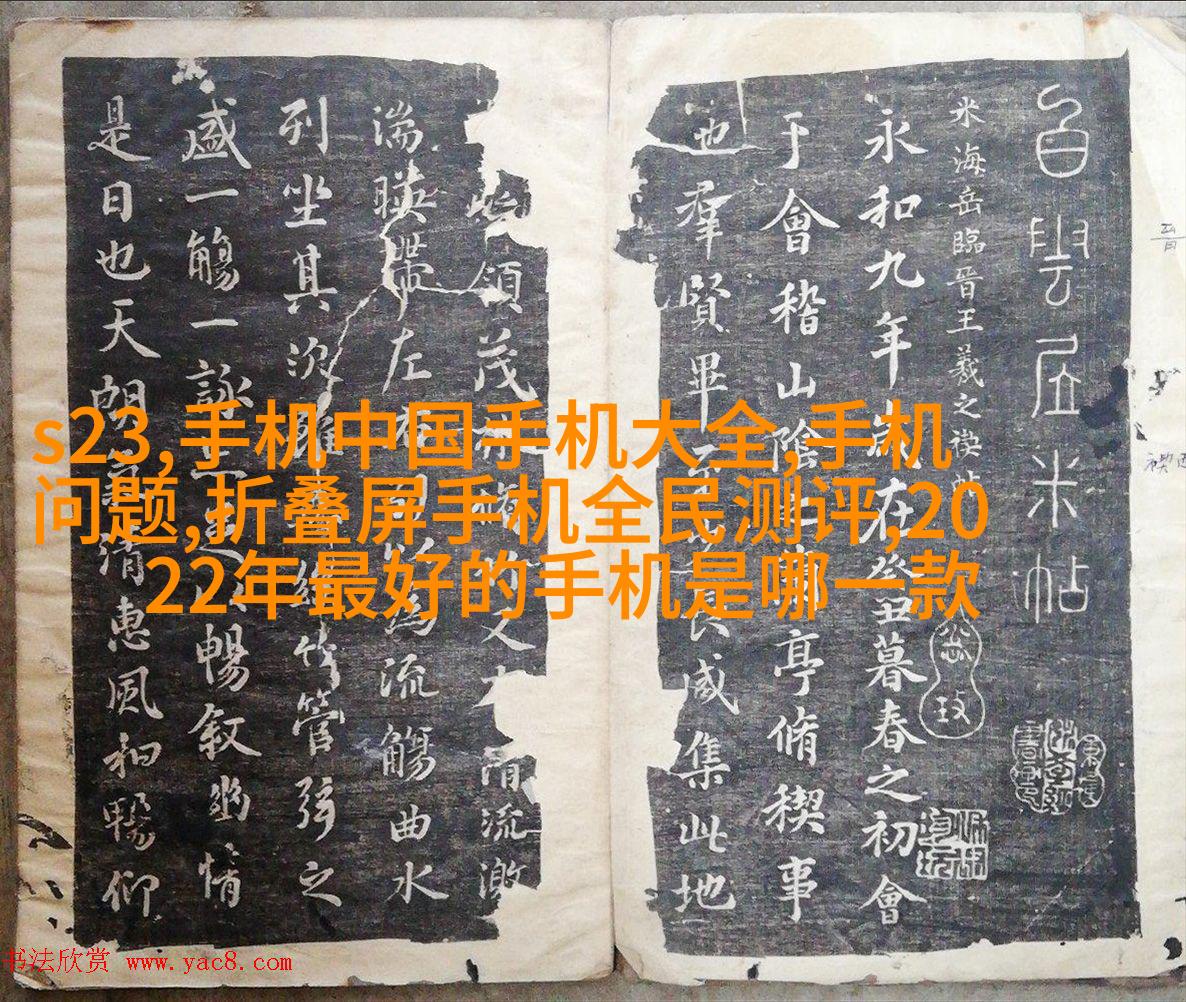 白雲居米帖
米海岳臨晉王羲之禊帖
永和九年歲在癸丑暮春之初會
于會稽山陰亭脩稧事
也羣賢畢長咸集此地
領茂又有清流激
湍暎帶左右為流觴曲水
列坐其次雖絲竹管弦之
盛一觴一詠暢叙幽情
是日也天朗氣清惠風和暢仰
s23,手机中国手机大全,手机
问题,折叠屏手机全民测评,20
22年最好的手机是哪一款
书法欣赏 www.yac8.com